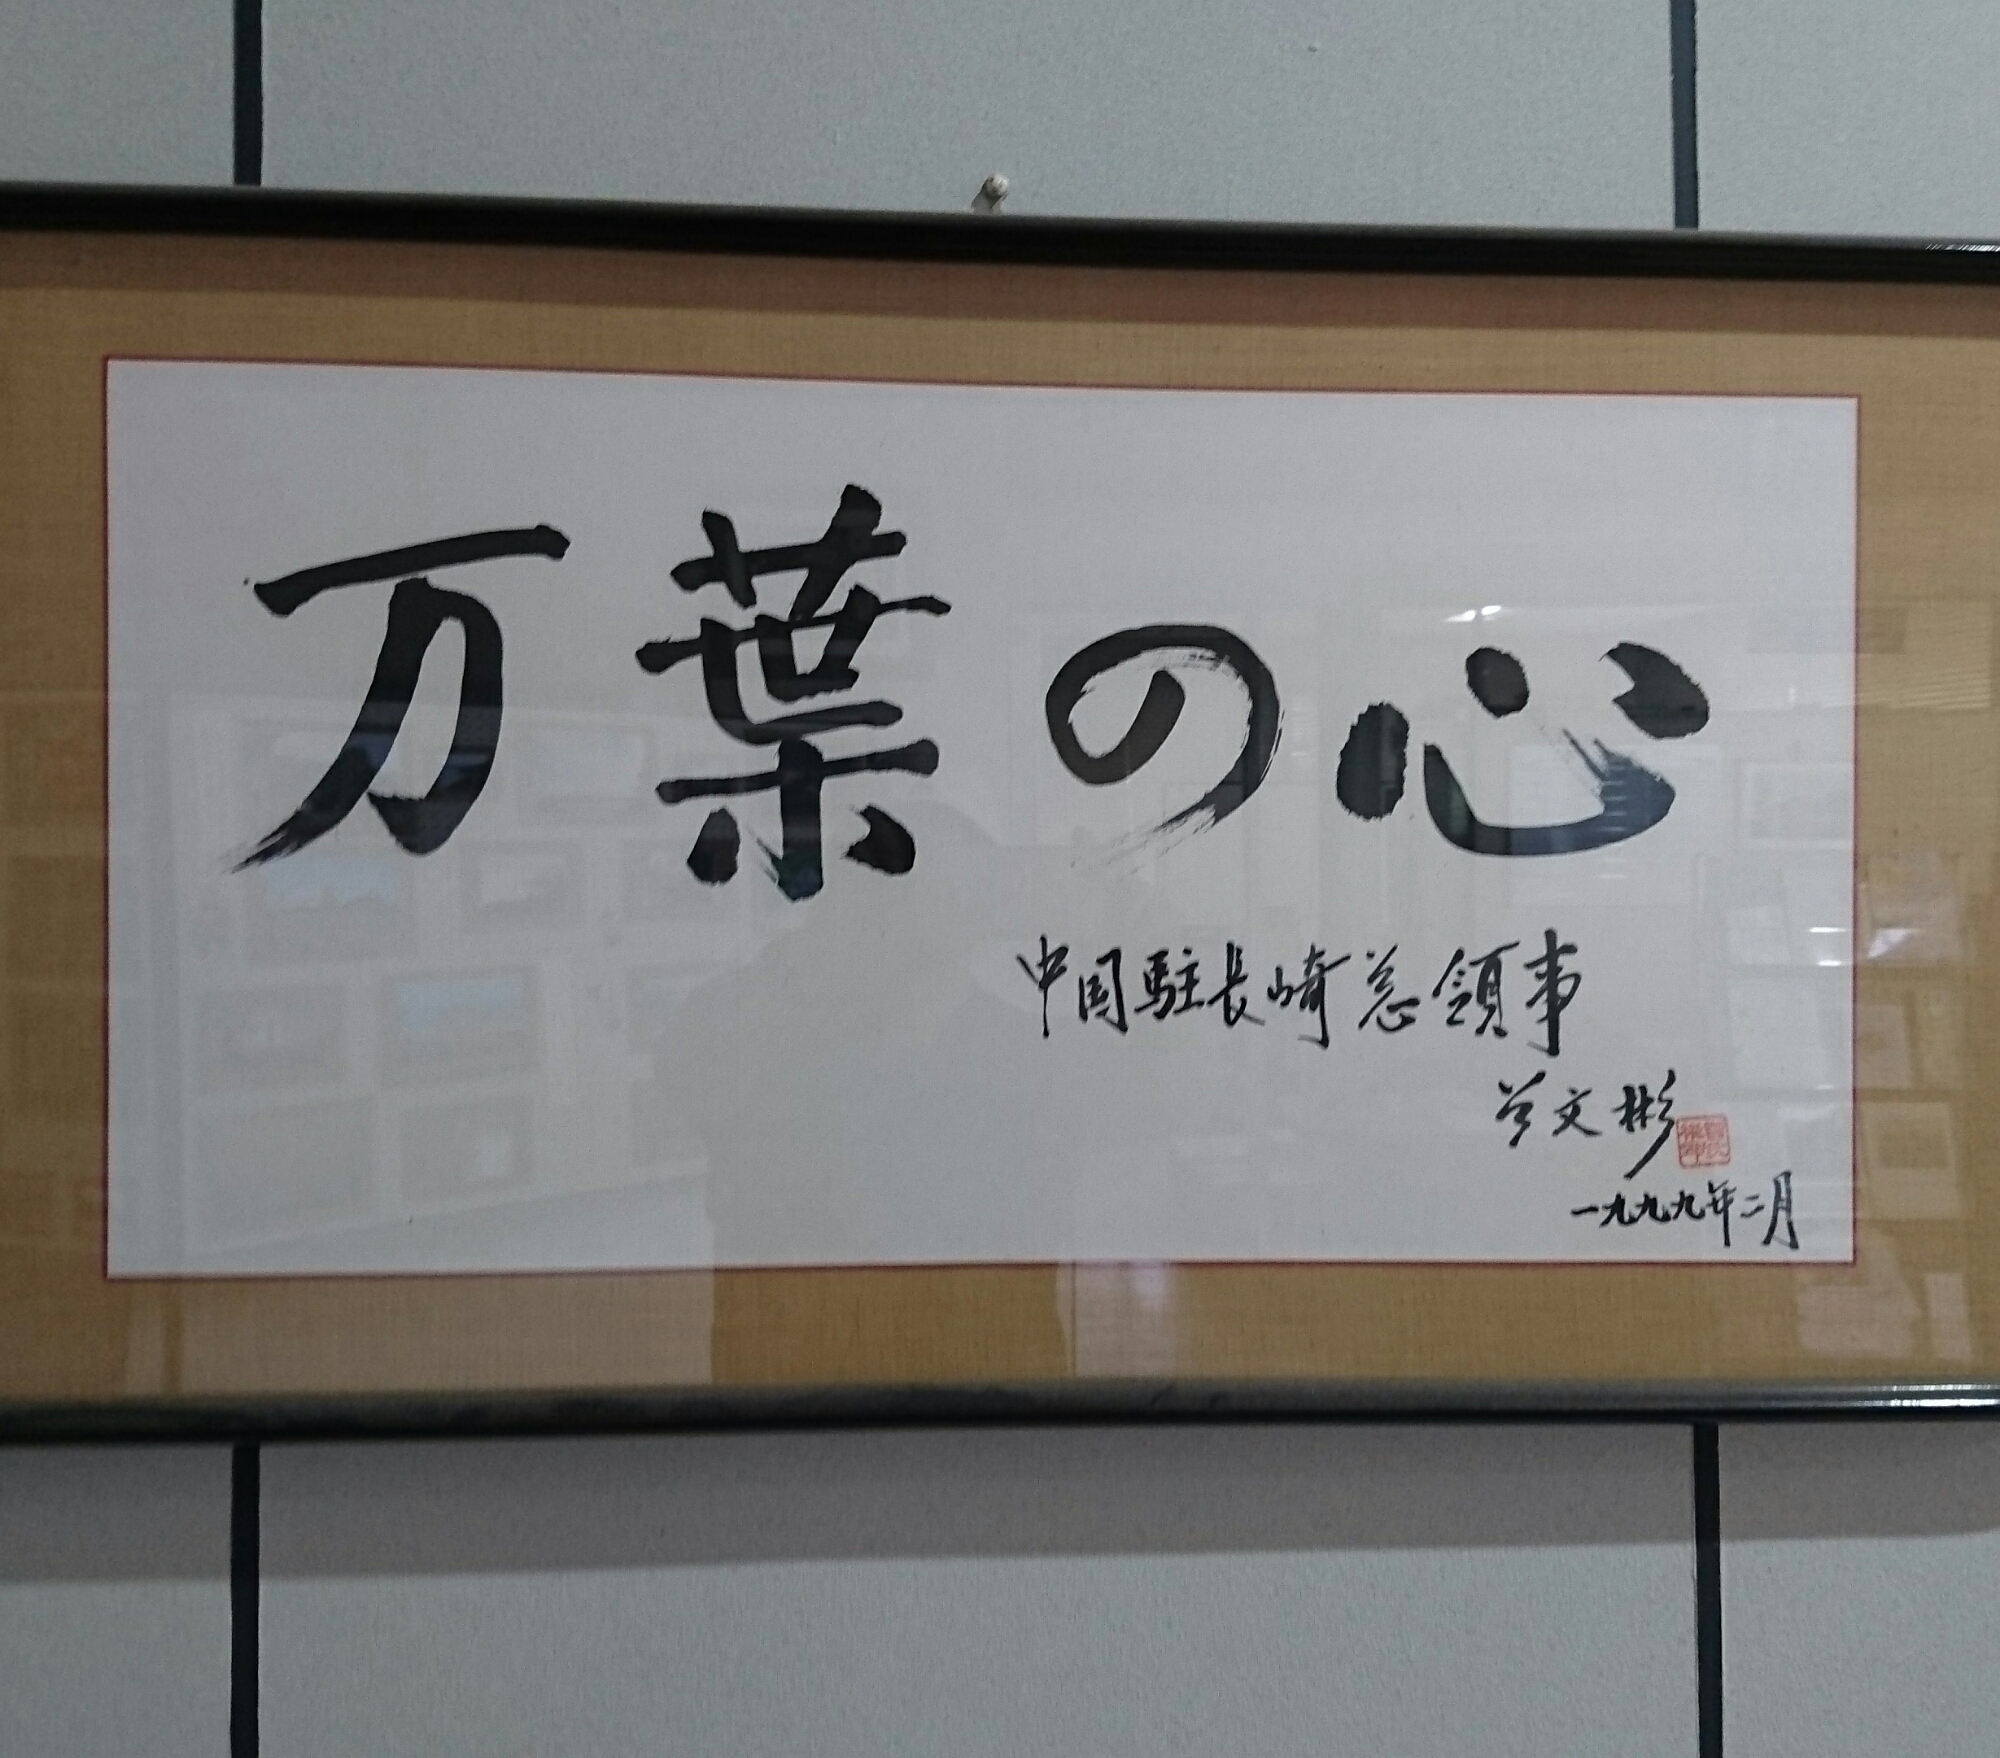 万葉の心
中国駐長崎总領事
曽文彬
一九九九年二月